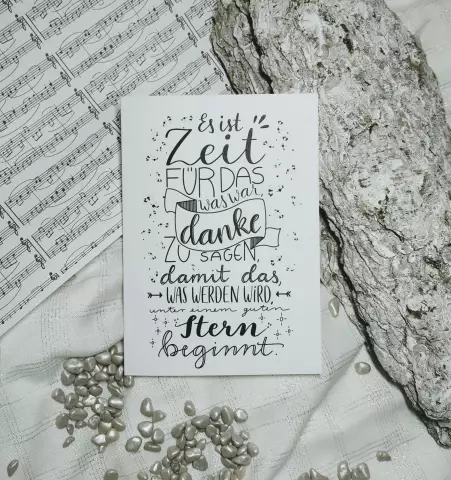 Es ist
Zeit
FÜR DAS
was war,
danke
ZU SAGEN,
damit das,
WAS WERDEN WIRD,
unter einem guten
Stern
beginnt.